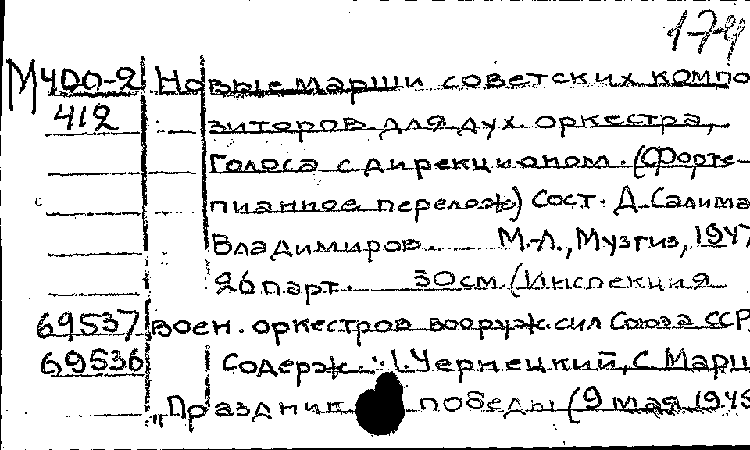 179
М400-2 Новые марши советских компо
412 зиторов для дух. оркестра,
Голоса с дирекционом. (Форте-
пианное перелож) Сост. Д. Салима
Владимиров. М.-Л., Музгиз, 1947
26 парт. 30см (Инспекция
69537 воен. оркестров вооруж. сил Союза ССР
69536 Содерж.: 1. Чернецкий, С. Марш
"Праздник победы (9 мая 1945